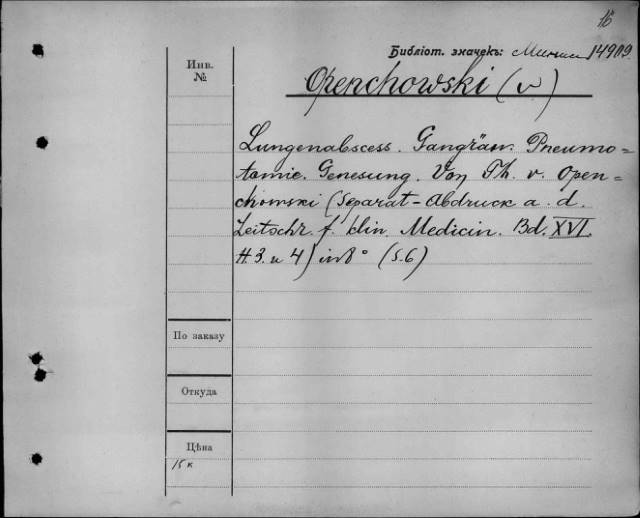 16
Библіот. значекъ: 14909.
Инв.
№
Openchowski (v)
Lungenabscess. Gangrän. Pneumo=
tomie. Genesung. Von Th. v. Open=
chowski (Separat-Abdruck a. d.
Zeitschr. f. klin. Medicin. Bd. XVI.
H. 3. u 4) in 8° (S. 6)
По заказу
Откуда
Цѣна
15 к